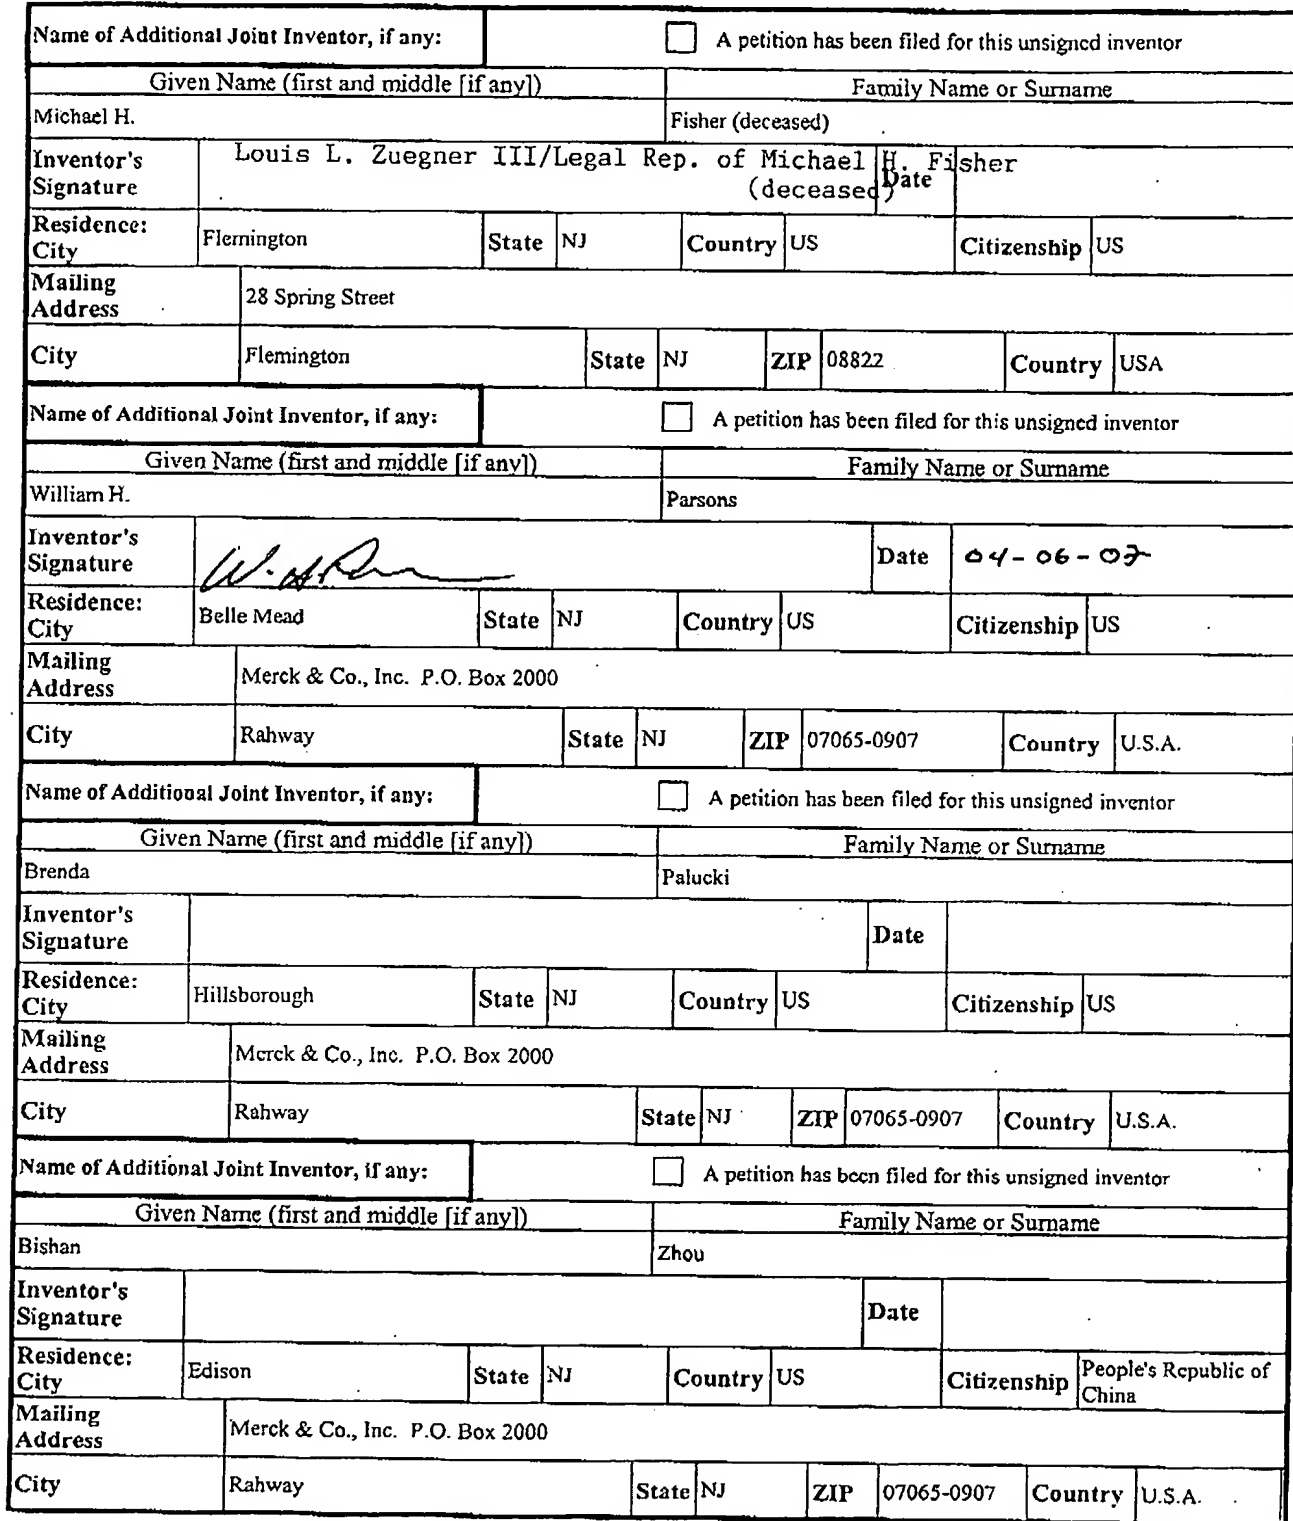 Name of Additional Joint Inventor, if any: A petition has been filed for this unsigned inventor
Given Name (first and middle [if any]) Family Name or Surname
Michael H. Fisher (deceased)
Inventor's Signature Louis L. Zuegner III/Legal Rep. of Michael H. Fisher
(deceased) Date
Residence: City Flemington State NJ Country US Citizenship US
Mailing Address 28 Spring Street
City Flemington State NJ ZIP 08822 Country USA
Name of Additional Joint Inventor, if any: A petition has been filed for this unsigned inventor
Given Name (first and middle [if any]) Family Name or Surname
William H. Parsons
Inventor's Signature Date
Residence: City Belle Mead State NJ Country US Citizenship US
Mailing Address Merck & Co., Inc. P.O. Box 2000
City Rahway State NJ ZIP 07065-0907 Country U.S.A.
Name of Additional Joint Inventor, if any: A petition has been filed for this unsigned inventor
Given Name (first and middle [if any]) Family Name or Surname
Brenda Palucki
Inventor's Signature Date
Residence: City Hillsborough State NJ Country US Citizenship US
Mailing Address Merck & Co., Inc. P.O. Box 2000
City Rahway State NJ ZIP 07065-0907 Country U.S.A.
Name of Additional Joint Inventor, if any: A petition has been filed for this unsigned inventor
Given Name (first and middle [if any]) Family Name or Surname
Bishan Zhou
Inventor's Signature Date
Residence: City Edison State NJ Country US Citizenship People's Republic of China
Mailing Address Merck & Co., Inc. P.O. Box 2000
City Rahway State NJ ZIP 07065-0907 Country U.S.A.